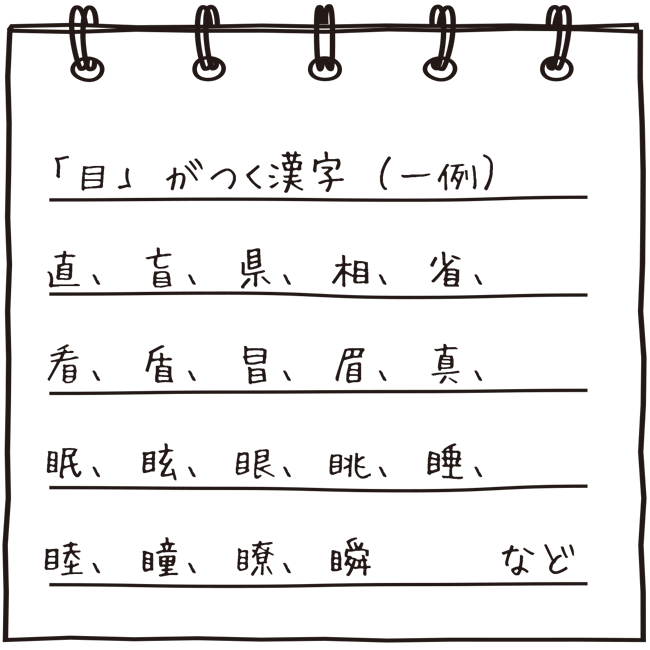 「目」がつく漢字（一例）
直、盲、県、相、省、
看、盾、冒、眉、真、
眠、眩、眼、眺、睡、
睦、瞳、瞭、瞬　など